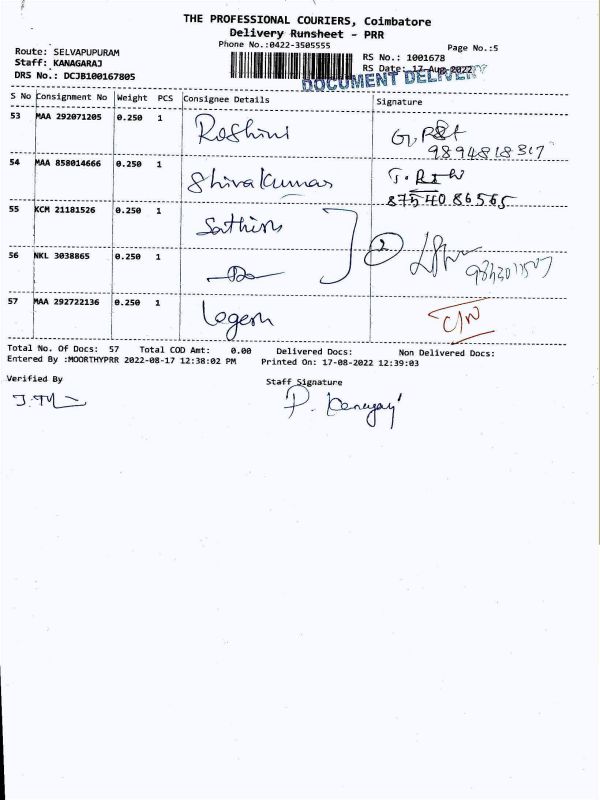 THE PROFESSIONAL COURIERS, Coimbatore
Delivery Runsheet - PRR
Phone No.:0422-3505555
Page No.:5
Route: SELVAPUPURAM
RS No.: 1001678
Staff: KANAGARAJ
RS Date: 17-Aug-2022
DRS No.: DCJB100167805
DOCUMENT DELIVERY
S No Consignment No Weight PCS Consignee Details Signature
53 MAA 292071205 0.250 1 Roshini
9894818317
54 MAA 858014666 0.250 1 Shivakumar
8754086565
55 KCM 21181526 0.250 1 Sathish
2
56 NKL 3038865 0.250 1 Do
57 MAA 292722136 0.250 1 Logesh
Total No. Of Docs: 57 Total COD Amt: 0.00 Delivered Docs: Non Delivered Docs:
Entered By :MOORTHYPRR 2022-08-17 12:38:02 PM Printed On: 17-08-2022 12:39:03
Verified By Staff Signature
P. Kanagaraj